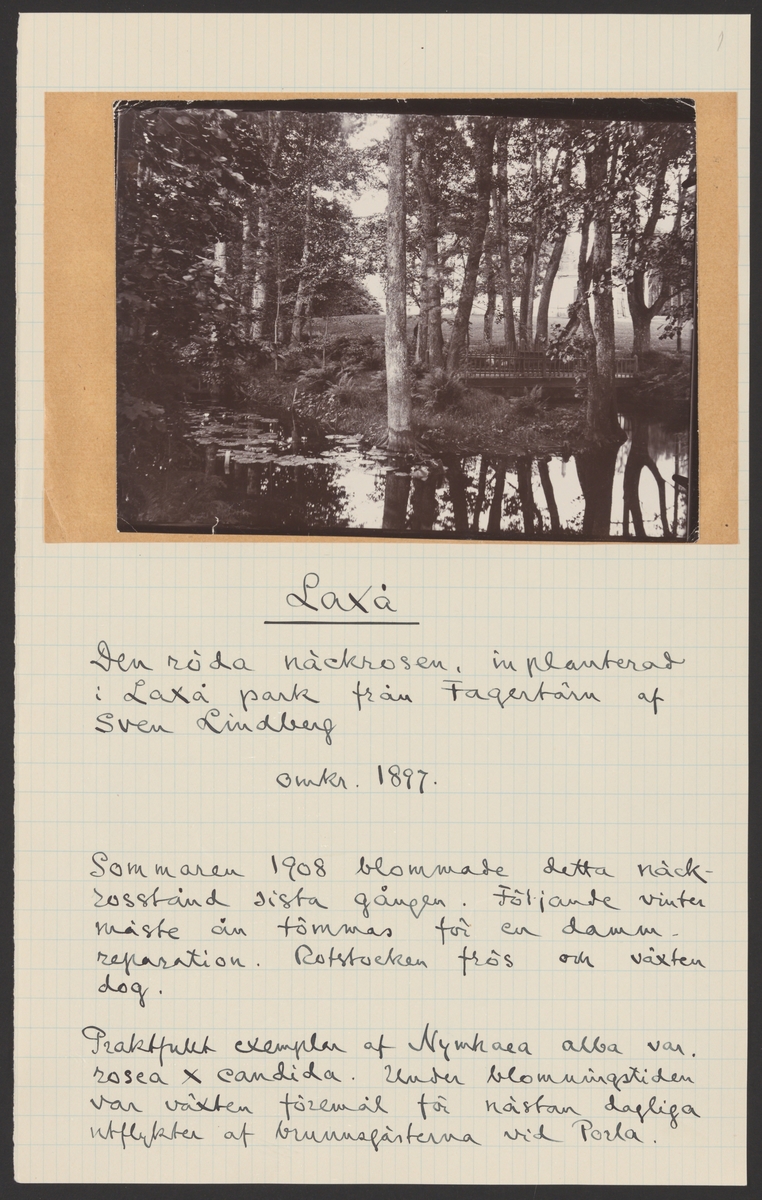 1
Laxå
Den röda näckrosen, inplanterad
i Laxå park från Fagertärn af
Sven Lindberg
omkr. 1897.
Sommaren 1908 blommade detta näck-
rosstånd sista gången. Följande vinter
måste ån tömmas för en damm-
reparation. Rotstocken frös och växten
dog.
Praktfullt exemplar af Nymhaea alba var.
rosea x candida. Under blomningstiden
var växten föremål för nästan dagliga
utflykter af brunnsgästerna vid Porla.